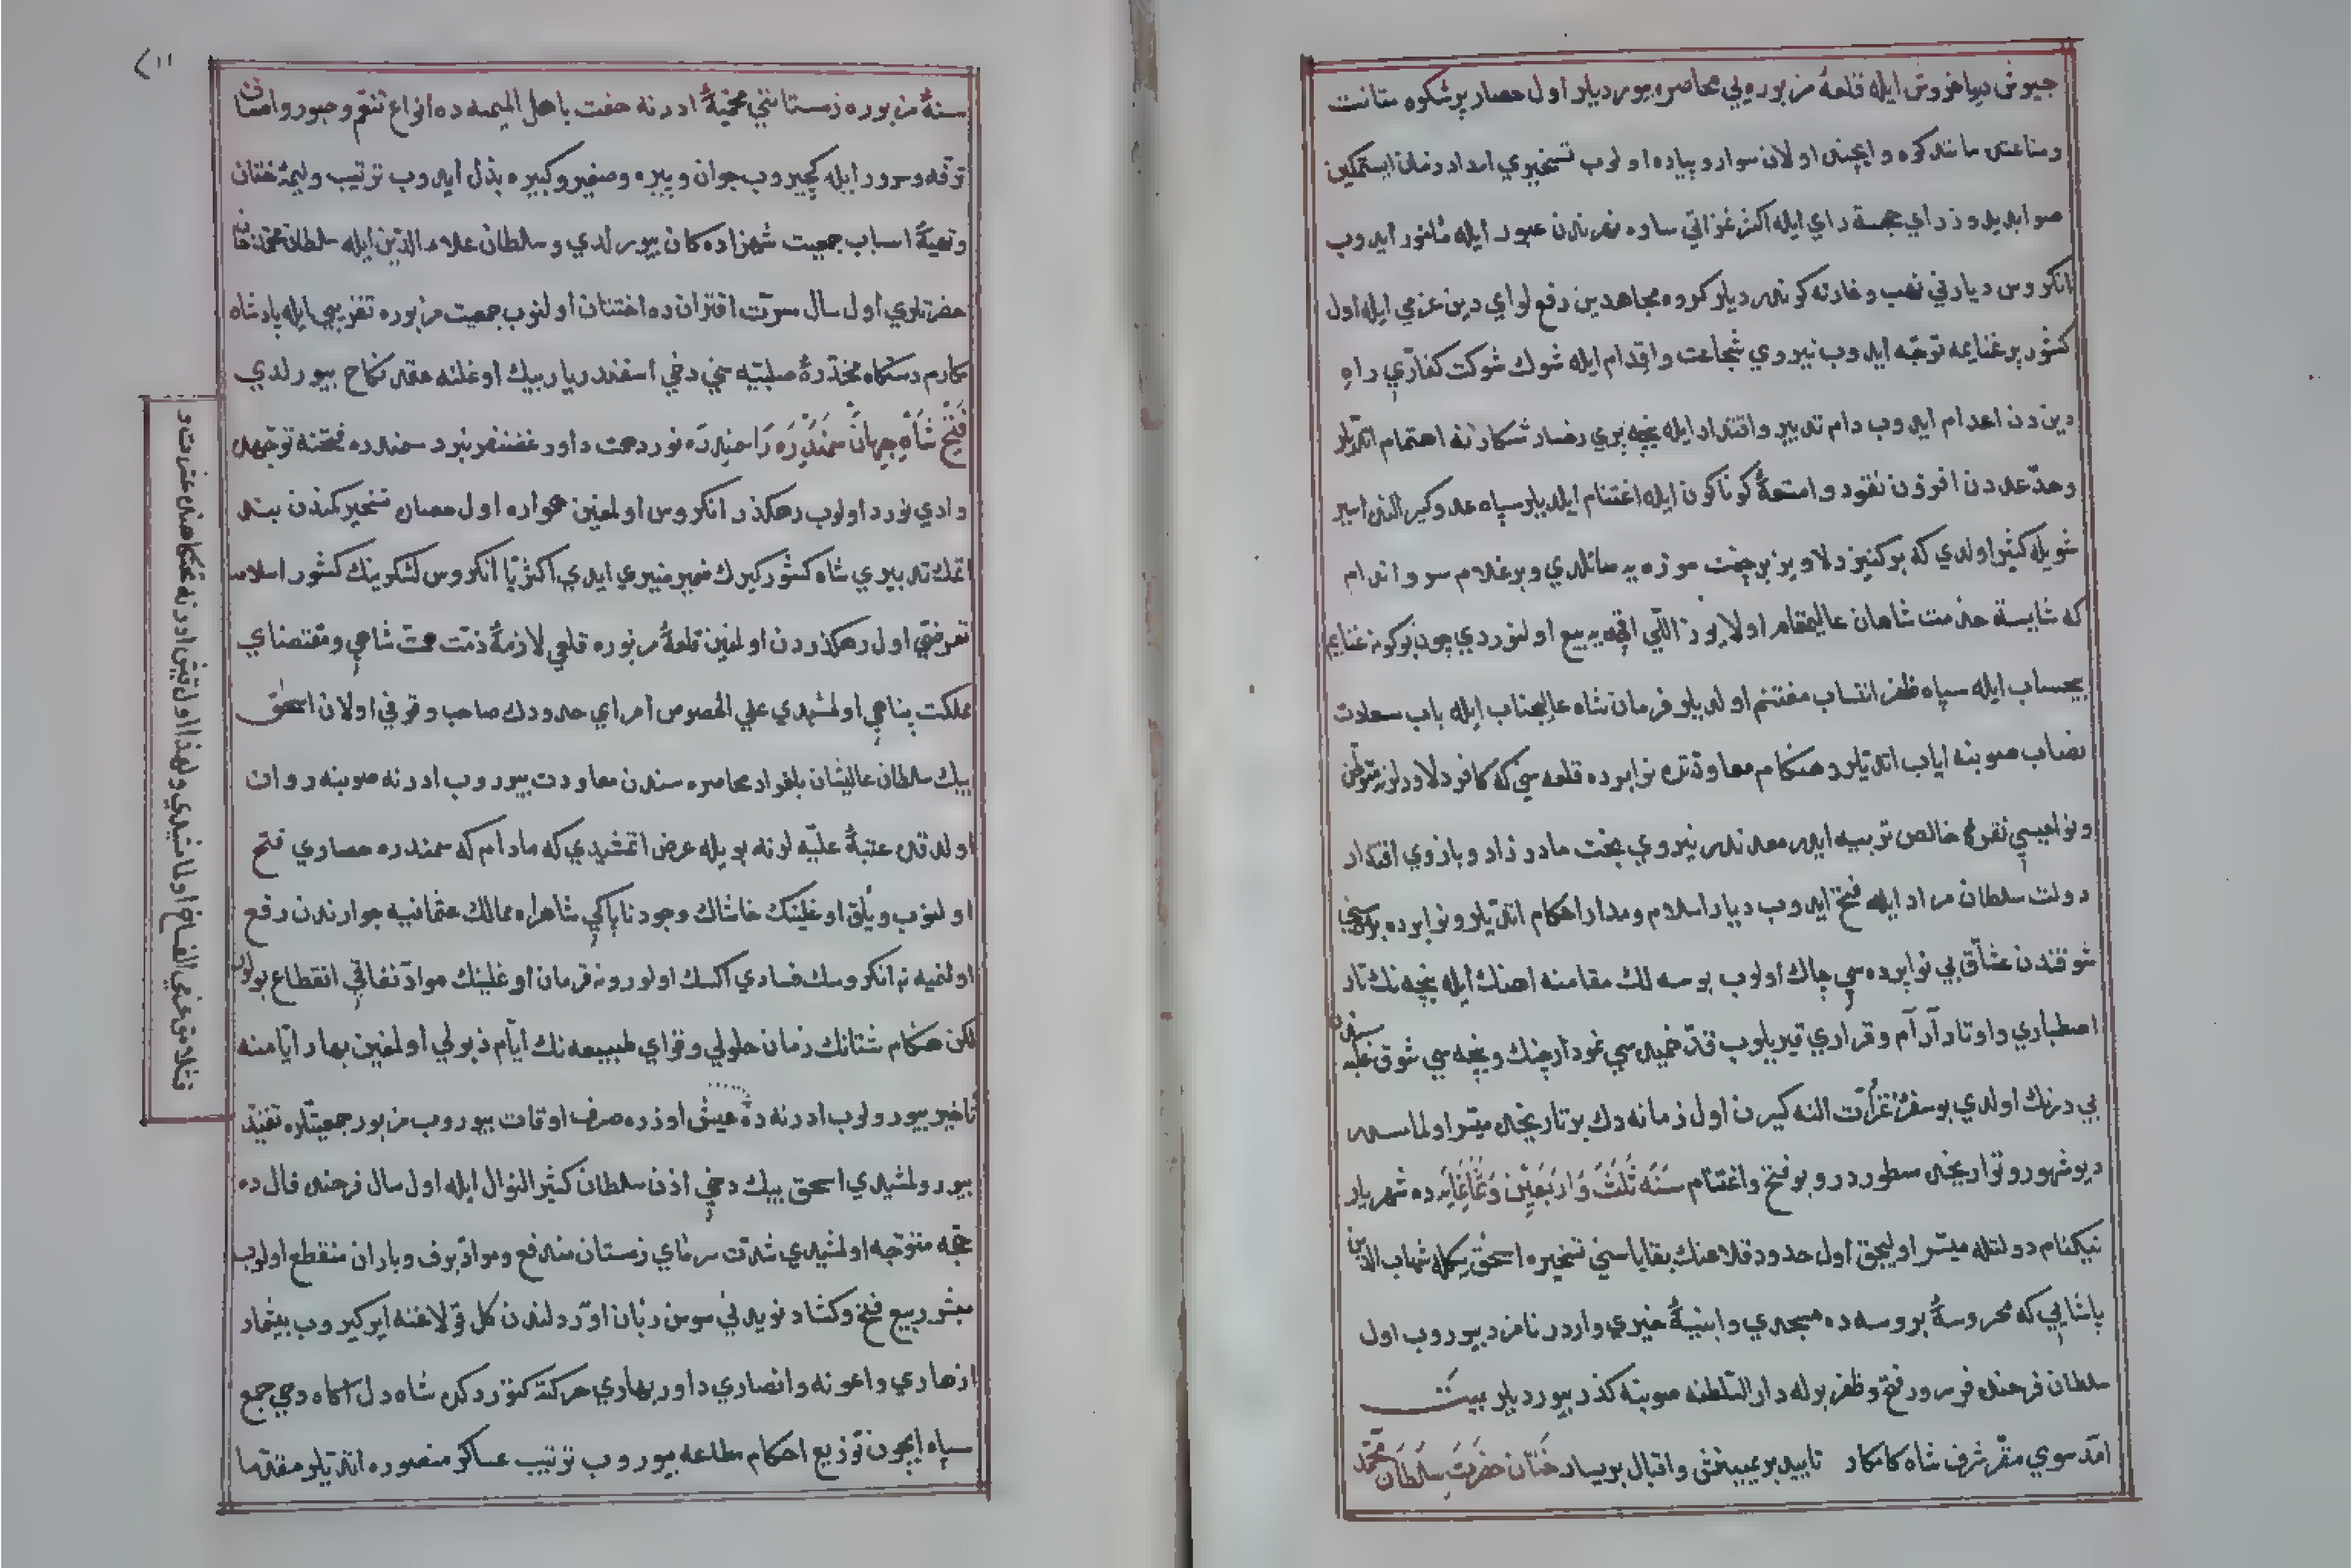 جيوش دريا خروش ايله قلعهٔ مزبوره يي محاصره بيورديلر اول حصار پرشكوه متانت
ومناعتده مانند كوه وايچنده اولان سوار وپياده اولوب تسخيري امداد زمان ايستمكين
صوابديد وزراي خجسته راي ايله اكثر غزاتي ساوه نهرندن عبور ايله مأمور ايدوب
انكروس ديارني نهب وغارته كوندرديلر كروه مجاهدين رفع لواي دين عزمي ايله اول
كشور پرغنايمه توجه ايدوب نيروي شجاعت واقدام ايله شوك شوكت كفاري راه
ديندن اعدام ايدوب دام تدبير واقتدار ايله نيچه پري رخسار شكارنه اهتمام اتديلر
وحدّ عددن افزون نقود وامتعهٔ كوناكون ايله اغتنام ايلديلر سپاه عدوكير الندن اسير
شويله كثير اولدي كه بر كنيز دلاويز بر جفت موزه يه صاتلدي وبر غلام سرو اندام
كه شايستهٔ خدمت شاهان عاليمقام اولا يوز اللي اقچه يه بيع اولنوردي چون بو كونه غنايم
بيحساب ايله سپاه ظفر انتساب مغتنم اولديلر فرمان شاه عاليجناب ايله باب سعادت
نصاب صوبنه اياب اتديلر وهنكام معاودتده نوابرده قلعه سي كه كافر دلاور لرنه متوطن
ونواحيسي نقرهٔ خالص تربيه ايدر معدندر نيروي بخت مادر زاد وبازوي اقتدار
دولت سلطان مراد ايله فتح ايدوب ديار اسلام ومدار احكام اتديلر ونوابرده
شوقندن عشاق بي نوا پرده سي چاك اولوب بوسه لك مقامنه اهنك ايله نيچه نك تار
اصطباري واوتار آرام وقراري قيريلوب قدّ خميده سي نمودار چنك ونيچه سي شوق
بي درنك اولدي بو سفرده غزات النه كيرن اول زمانه دك بر تاريخده ميسر اولماسي
ديو مشهور وتواريخده مسطوردر وبو فتح واغتنام سَنَه ثَلَثَ وَاَرْبَعِيْنَ وَثَمَانِمَايَه ده شهريار
نيكنام دولتله ميسر اوليجق اول حدود قلاعنك بقاياسني تسخيره اسحق بيكله شهاب الدين
پاشايي كه محروسهٔ بروسه ده مسجدي وابنيهٔ خيري واردر نامزد بيوروب اول
سلطان فرخنده فر سرور فتح وظفر بوله دار السلطنه صوبنه كذر بيورديلر بيت
امد سوي مقر شرف شاه كامكار تاييد بر يمينش واقبال بر يسار خَتَان حضرَت سُلطَان محمّد
٢١١
سنهٔ مزبوره زمستانني محميهٔ ادرنه حفت باهل الميمنه ده انواع تنعّم وحبور واصناف
ترفّه وسرور ايله كچيروب جوان وپيره وصغير وكبيره بذل ايدوب ترتيب وليمهٔ ختان
وتهيهٔ اسباب جمعيت شهزاده كان بيورلدي وسلطان علاء الدين ايله سلطان محمد خان
حضرتلري اول سال مسرّت اقترانده اختتان اولنوب جمعيت مزبوره تقريبي ايله پادشاه
مكارم دستكاه مخدّرهٔ صلبيّه سني دخي اسفنديار بيك اوغلنه عقد نكاح بيورلدي
فَتْحِ شَاهِ جِهَانْ سَمَنْدَرَه رَا سمند ره نورد همت داور غضنفر نبرد سمندره فتحنه توجهده
وادي نورد اولوب رهكذر انكروس اولمغين همواره اول حصان تسخير كمندن بنده
اتمك تدبيري شاه كشوركيرك ضمير منيري ايدي اكثريّا انكروس لشكرينك كشور اسلامه
تعرضي اول رهكذردن اولمغين قلعهٔ مزبوره قلعي لازمهٔ ذمّت همّت شاهي ومقتضاي
مملكت پناهي اولمشيدي علي الخصوص امراي حدوددك صاحب وقوفي اولان اسحق
بيك سلطان عاليشان بلغراد محاصره سندن معاودت بيوروب ادرنه صوبنه روان
اولدقده عتبهٔ عليّه لرنه بويله عرض اتمشيدي كه مادام كه سمندره حصاري فتح
اولنوب ويلق اوغلينك خاشاك وجود ناپاكي شاهراه ممالك عثمانيه جوارندن رفع
اولنميه نه انكروسك فسادي اكسك اولور ونه قرمان اوغلينك موادّ نفاقي انقطاع بولور
لكن هنكام شتانك زمان حلولي وقواي طبيعه نك ايّام ذبولي اولمغين بهار ايّامنه
تأخير بيورولوب ادرنه ده عيش اوزره صرف اوقات بيوروب مزبور جمعيتلره تقيّد
بيورولمشيدي اسحق بيك دخي اذن سلطان كثير النوال ايله اول سال فرخنده فال ده
حجّه متوجّه اولمشيدي شدّت سرماي زمستان مندفع وموادّ برف وباران منقطع اولوب
مبشّر ربيع فتح وكشاد نويدني سوسن زبان اوّر دلندن كل قولاغنه ايركيروب بيشمار
ازهاري واعونه وانصاري داور بهاري حركته كتوردكده شاه دل اكاه دخي جمع
سپاه ايچون توزيع احكام مطاعه بيوروب ترتيب عساكر منصوره اتديلر مقدما
قشلامق عزمي الغاغ اولمامشيدي ولهذا اول قيش ادرنه تختكاهنده عشرت و